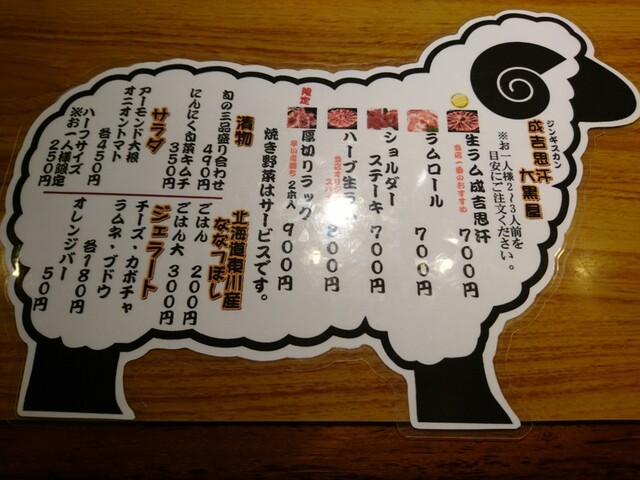 ジンギスカン
成吉思汗
大黒屋
※お一人様2～3人前を
目安にご注文ください。
生ラム成吉思汗 700円
当店一番のおすすめ
ラムロール 700円
ショルダー
ステーキ 700円
ハーブ生ラム 800円
限定
厚切りラック 900円
2本入
焼き野菜はサービスです。
漬物
旬の三品盛り合わせ
490円
にんにく白菜キムチ
350円
サラダ
アーモンド大根
オニオントマト
各450円
ハーフサイズ
※お一人様限定
250円
北海道東川産
ななつぼし
ごはん 200円
ごはん大 300円
ジェラート
チーズ・カボチャ
ラムネ・ブドウ
各180円
オレンジバー
50円